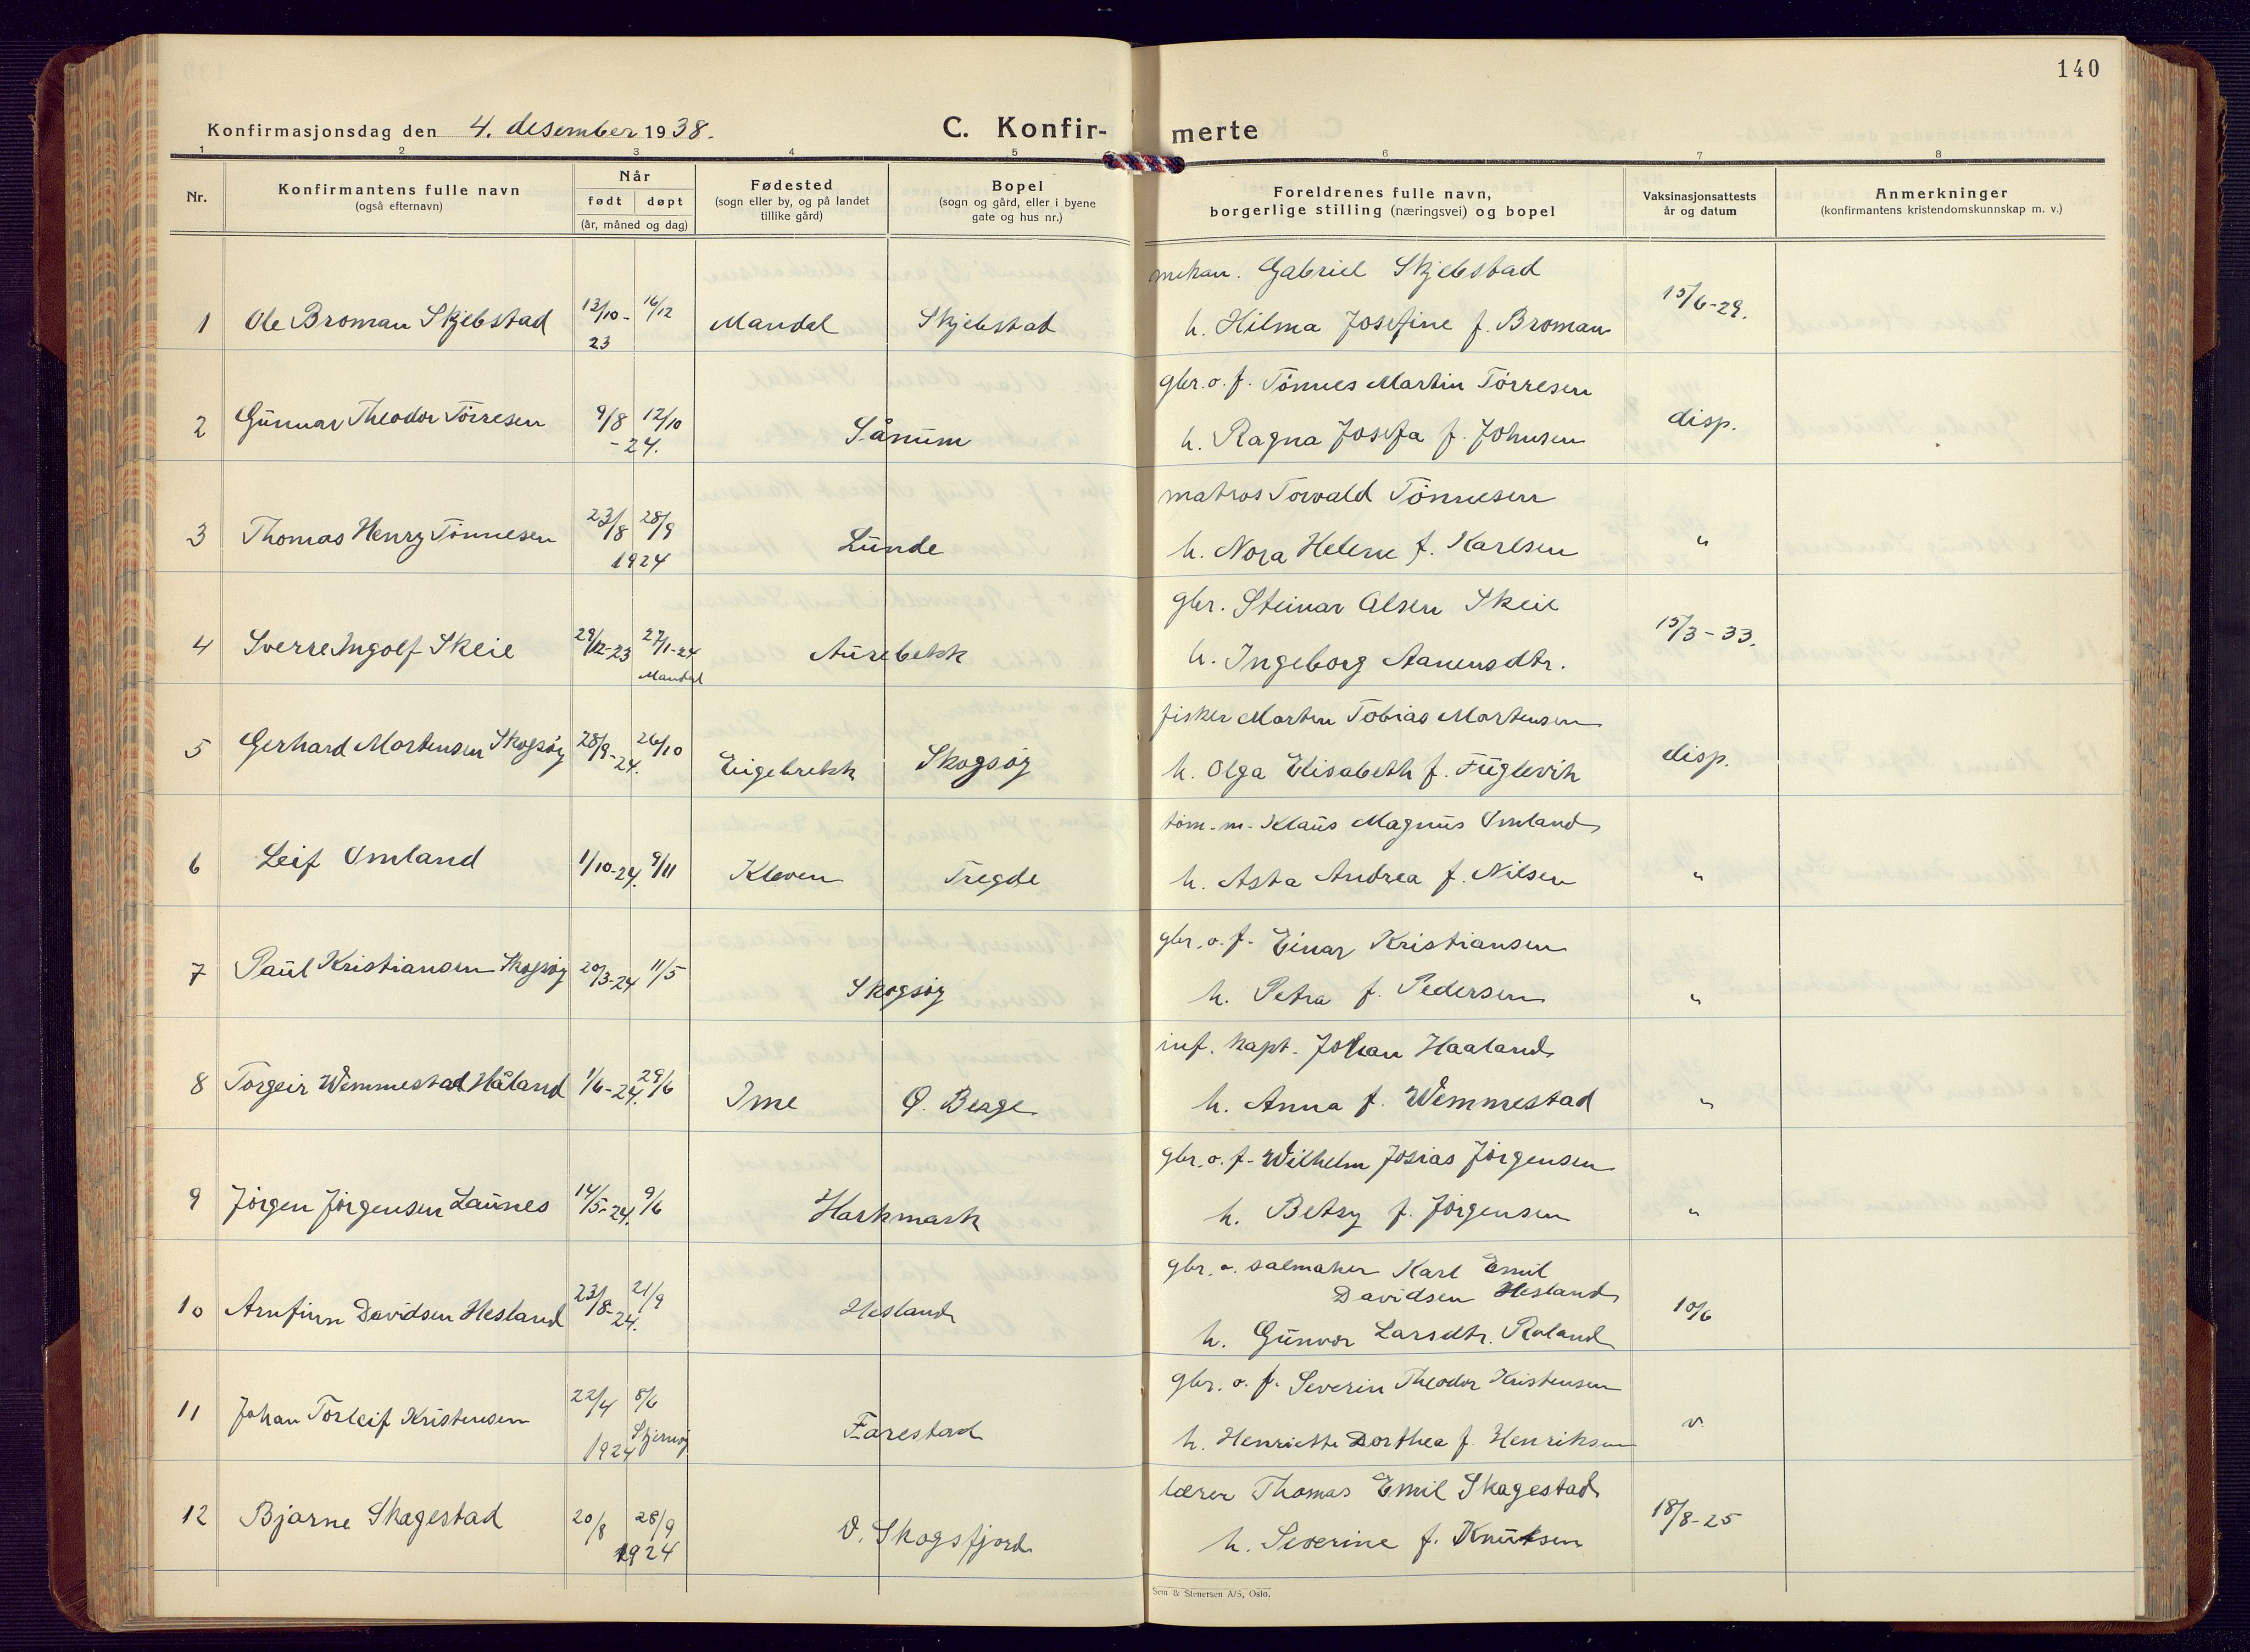 140
Konfirmasjonsdag den 4. desember 1938.
C. Konfir- merte
1 2 3 4 5 6 7 8
Nr.
Konfirmantens fulle navn
(også efternavn)
Når
født døpt
(år, måned og dag)
Fødested
(sogn eller by, og på landet
tillike gård)
Bopel
(sogn og gård, eller i byene
gate og hus nr.)
Foreldrenes fulle navn,
borgerlige stilling (næringsvei) og bopel
Vaksinasjonsattests
år og datum
Anmerkninger
(konfirmantens kristendomskunnskap m. v.)
mekan. Gabriel Skjebstad
1 Ole Broman Skjebstad 13/10- 23 16/12 Mandal Skjebstad
h. Hilma Josefine f. Broman
15/6-29.
gbr. o. f. Tönnes Martin Törresen
2 Gunnar Theodor Törresen 9/8 12/10 -24. Sånum
h. Ragna Josefa f. Johnsen
disp.
matros Torvald Tönnesen
3 Thomas Henry Tönnesen 23/8 28/9 1924 Lunde
h. Nora Helene f. Karlsen
"
gbr. Steinar Olsen Skeie
4 Sverre Ingolf Skeie 29/12-23 27/1-24 Mandal Aurebekk
h. Ingeborg Aanensdtr.
15/3-33.
fisker Martin Tobias Mortensen
5 Gerhard Mortensen Skogsöy 28/9-24. 26/10 Eigebrekk Skogsöy
h. Olga Elisabeth f. Fuglevik
disp.
töm.m. Klaus Magnus Omland
6 Leif Omland 1/10-24. 9/11 Kleven Tregde
h. Asta Andrea f. Nilsen
"
gbr. o. f. Einar Kristiansen
7 Paul Kristiansen Skogsöy 20/3-24 11/5 Skogsöy
h. Petra f. Pedersen
"
inf. kapt. Johan Haaland
8 Torgeir Wemmestad Håland 1/6-24. 29/6 Ime Ö. Berge
h. Anna f. Wemmestad
"
gbr. o. f. Wilhelm Josias Jörgensen
9 Jörgen Jörgensen Launes 14/5-24. 9/6 Harkmark
h. Betsy f. Jörgensen
"
gbr. o. salmaker Karl Emil
Davidsen Hesland
10 Arnfinn Davidsen Hesland 23/8-24. 21/9 Hesland
h. Gunvor Larsdtr. Roland
10/6
gbr. o. f. Severin Theodor Kristensen
11 Johan Torleif Kristensen 22/4 8/6 1924 Skjernöy Farestad
h. Henriette Dorthea f. Henriksen
v.
lærer Thomas Emil Skagestad
12 Bjarne Skagestad 20/8 28/9 1924 V. Skogsfjord
h. Severine f. Knutsen
18/8-25
Sem & Stenersen A/S, Oslo.